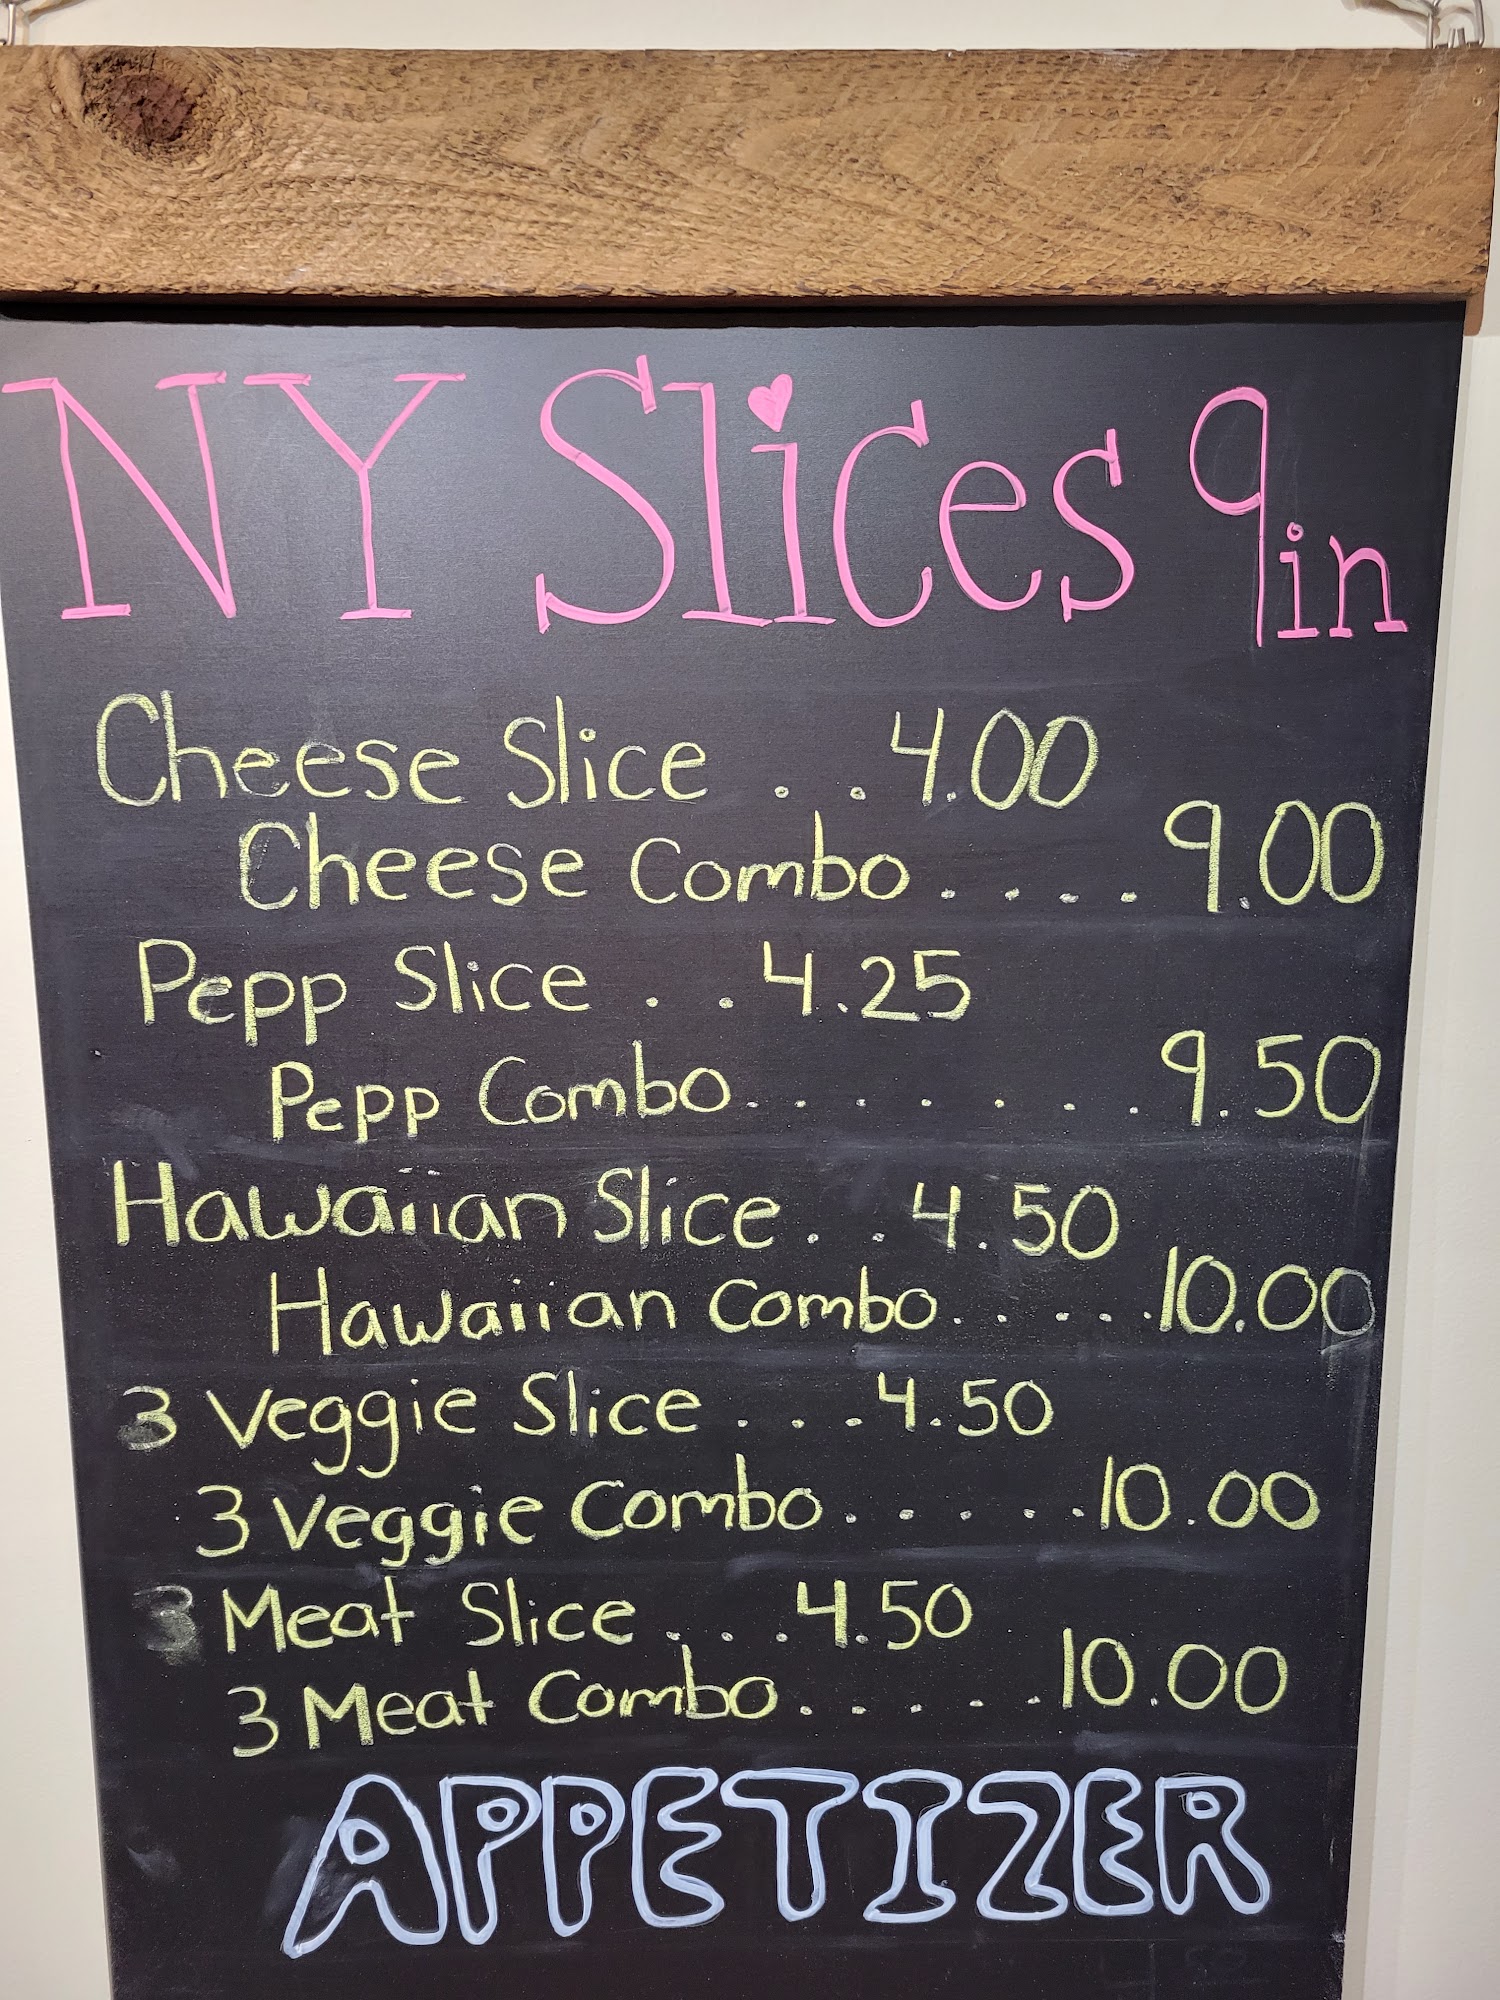 NY Slices 9in
Cheese Slice . . 4.00
Cheese Combo . . . . 9.00
Pepp Slice . . 4.25
Pepp Combo . . . . . . . 9.50
Hawaiian Slice . . 4.50
Hawaiian Combo . . . . . 10.00
3 Veggie Slice . . . 4.50
3 Veggie Combo . . . . . 10.00
3 Meat Slice . . . 4.50
3 Meat Combo . . . . . 10.00
APPETIZER